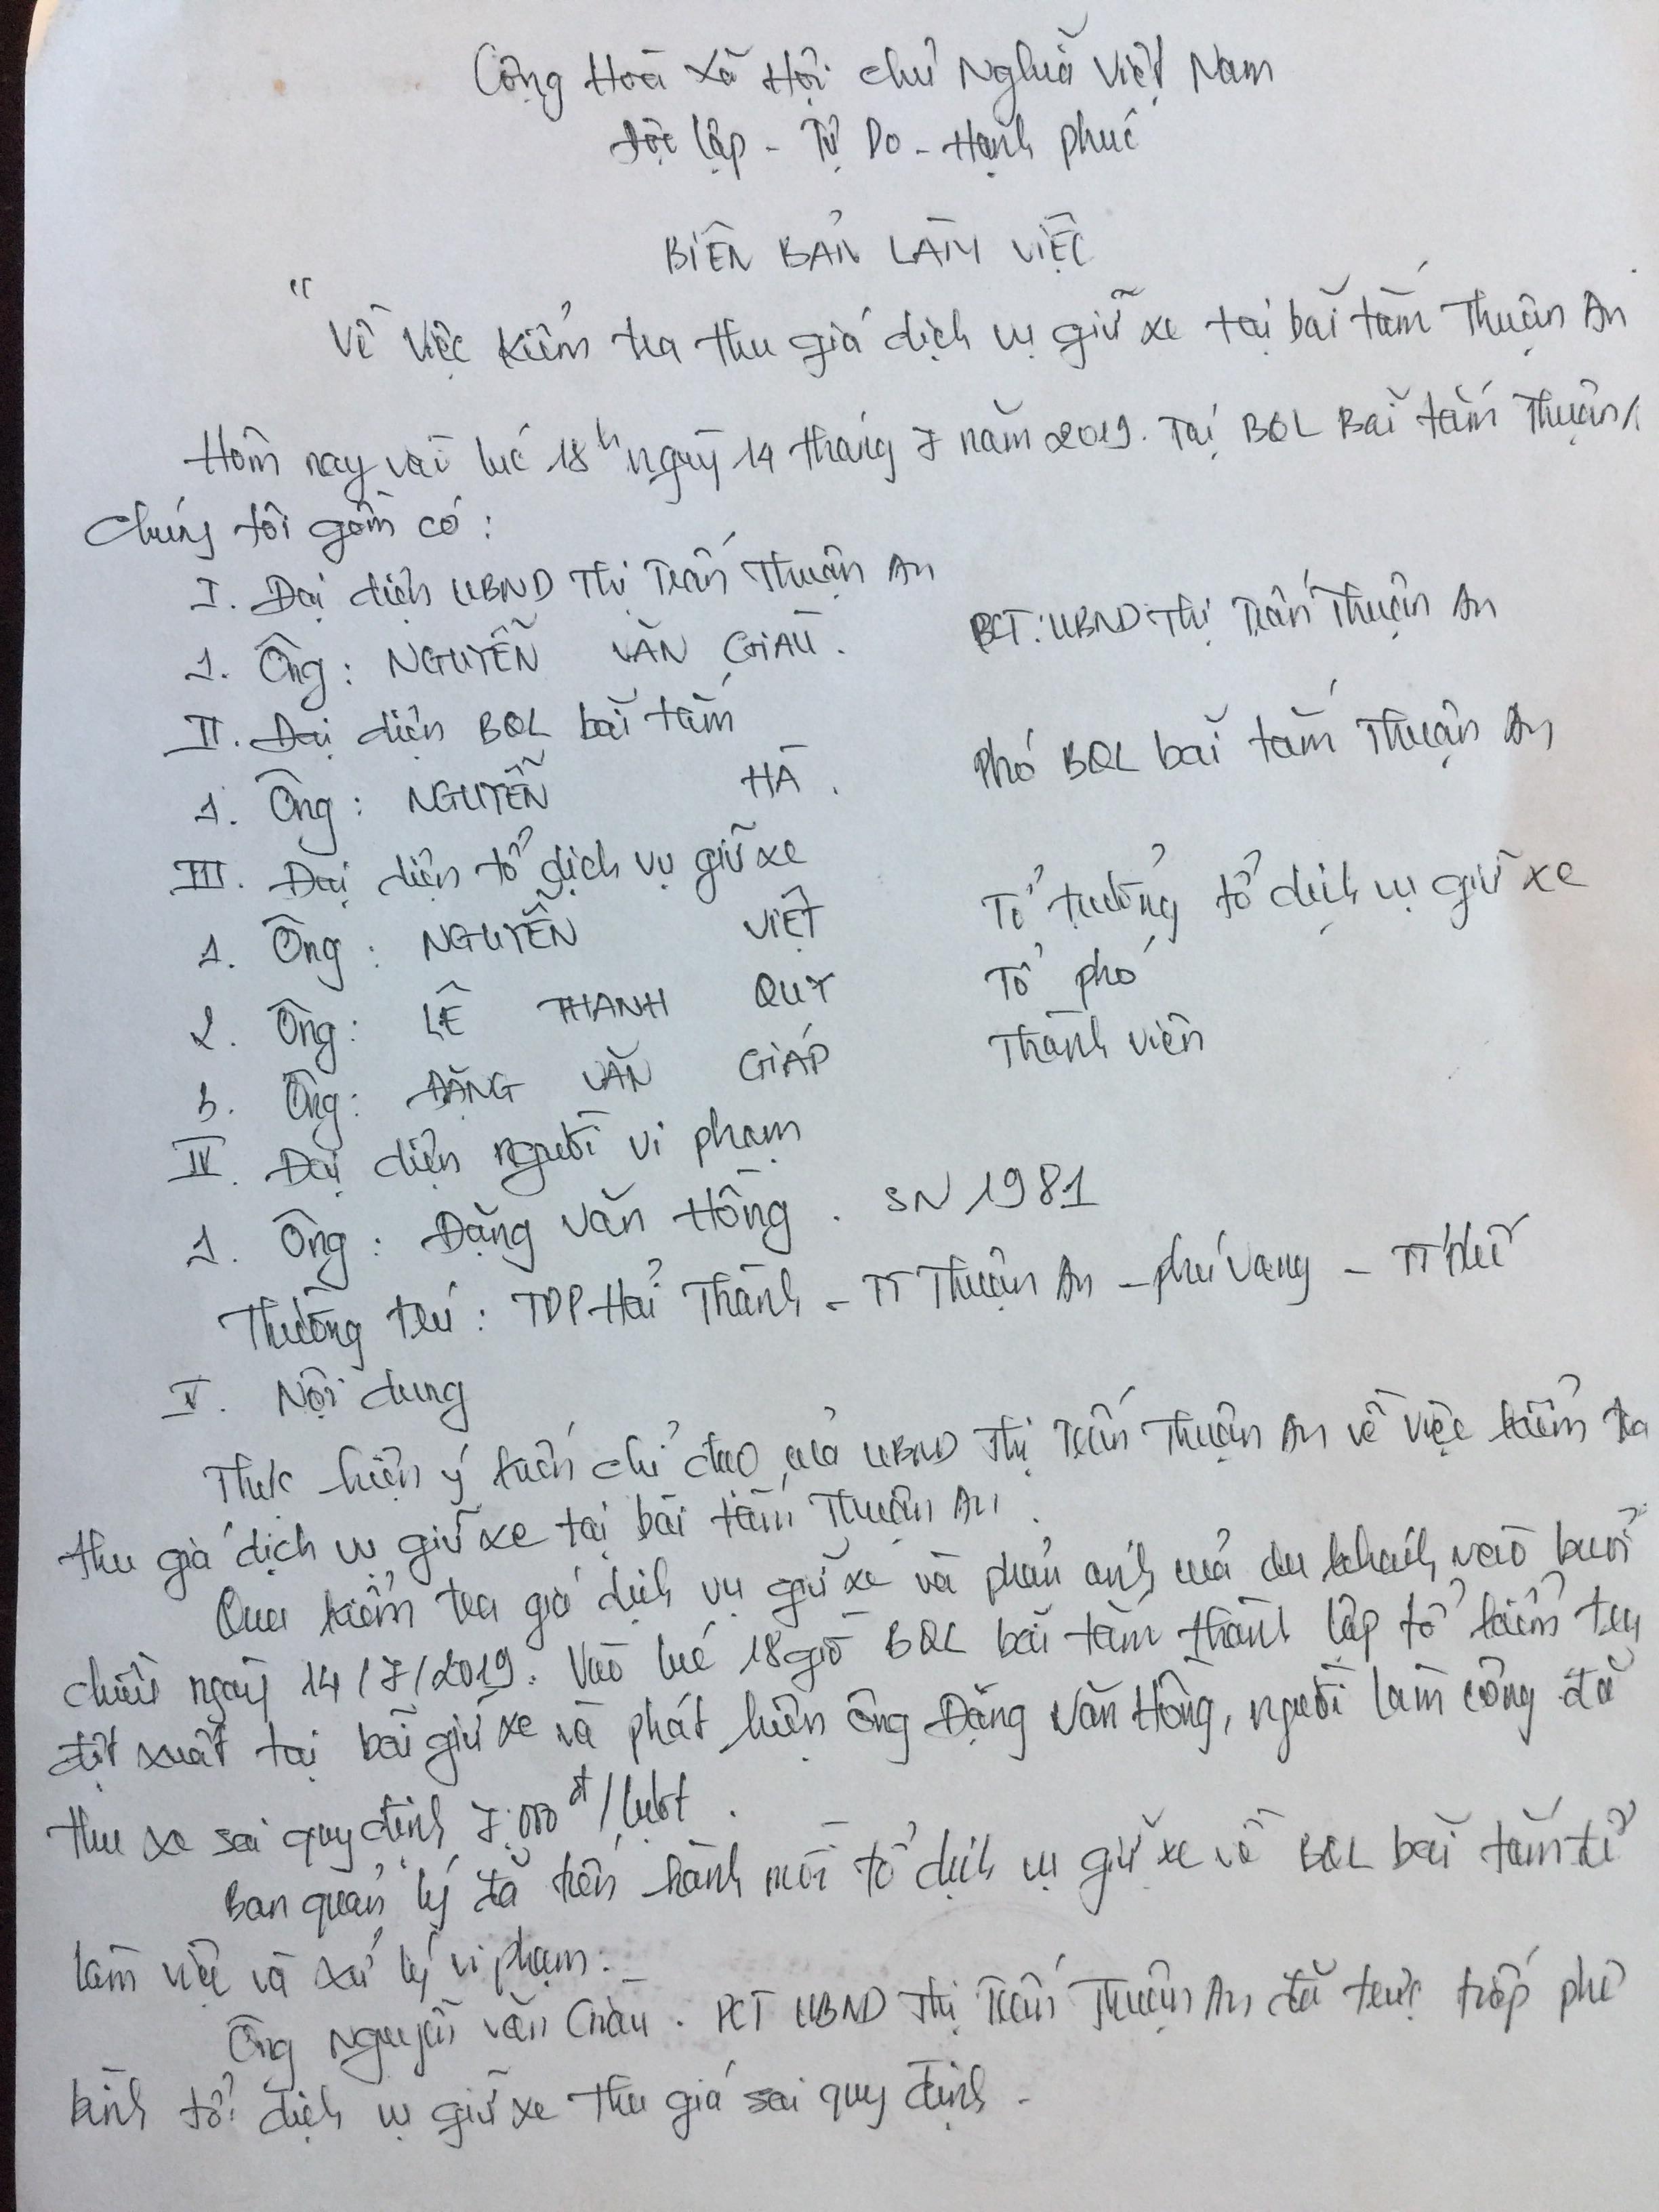 Cộng Hoà Xã Hội Chủ Nghĩa Việt Nam
Độc lập - Tự Do - Hạnh phúc
BIÊN BẢN LÀM VIỆC
"Về việc kiểm tra thu giá dịch vụ giữ xe tại bãi tắm Thuận An
Hôm nay vào lúc 18h ngày 14 tháng 7 năm 2019. Tại BQL Bãi tắm Thuận
Chúng tôi gồm có:
I. Đại diện UBND Thị Trấn Thuận An
1. Ông: NGUYỄN VĂN GIÀU. PCT: UBND Thị Trấn Thuận An
II. Đại diện BQL bãi tắm
1. Ông: NGUYỄN HÀ. Phó BQL bãi tắm Thuận An
III. Đại diện tổ dịch vụ giữ xe
1. Ông: NGUYỄN VIỆT Tổ trưởng tổ dịch vụ giữ xe
2. Ông: LÊ THANH QUY Tổ phó
3. Ông: ĐẶNG VĂN GIÁP Thành viên
IV. Đại diện người vi phạm
1. Ông: Đặng Văn Hồng. SN 1981
Thường trú: TDP Hải Thành - TT Thuận An - Phú Vang - TT Huế
V. Nội dung
Thực hiện ý kiến chỉ đạo của UBND Thị Trấn Thuận An về việc kiểm tra
thu giá dịch vụ giữ xe tại bãi tắm Thuận An.
Qua kiểm tra giá dịch vụ giữ xe và phản ánh của du khách vào buổi
chiều ngày 14/7/2019. Vào lúc 18 giờ BQL bãi tắm thành lập tổ kiểm tra
đột xuất tại bãi giữ xe và phát hiện ông Đặng Văn Hồng, người làm công đã
thu xe sai quy định 7.000đ/lượt.
Ban quản lý đã tiến hành mời tổ dịch vụ giữ xe về BQL bãi tắm để
làm việc và xử lý vi phạm.
Ông Nguyễn Văn Giàu. PCT UBND Thị Trấn Thuận An đã trực tiếp phê
bình tổ dịch vụ giữ xe thu giá sai quy định.